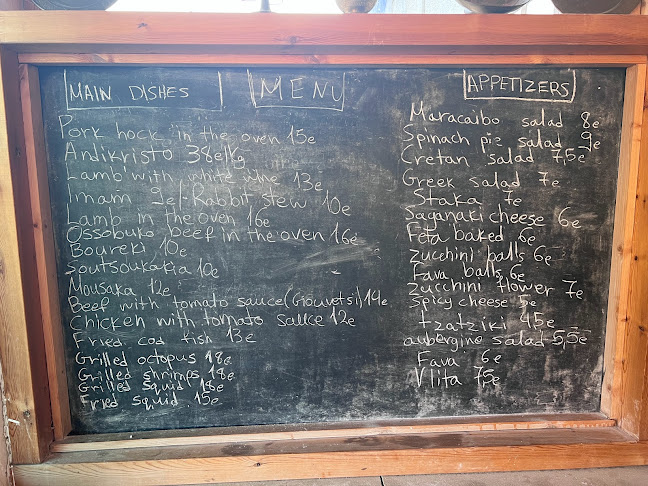 MENU
MAIN DISHES
Pork hock in the oven 15e
Andikristo 38e/Kg
Lamb with white wine 13e
Imam 9e/-Rabbit stew 10e
Lamb in the oven 16e
Ossobuko beef in the oven 16e
Boureki 10e
Soutsoukakia 10e
Mousaka 12e
Beef with tomato sauce (Giouvetsi) 14e
Chicken with tomato sauce 12e
Fried cod fish 13e
Grilled octopus 18e
Grilled shrimps 18e
Grilled squid 18e
Fried squid 15e
APPETIZERS
Maracaibo salad 8e
Spinach pie salad 9e
Cretan salad 7,5e
Greek salad 7e
Staka 7e
Saganaki cheese 6e
Feta baked 6e
Zucchini balls 6e
Fava balls 6e
Zucchini flower 7e
Spicy cheese 5e
tzatziki 4,5e
aubergine salad 5,5e
Fava 6e
Vlita 7,5e